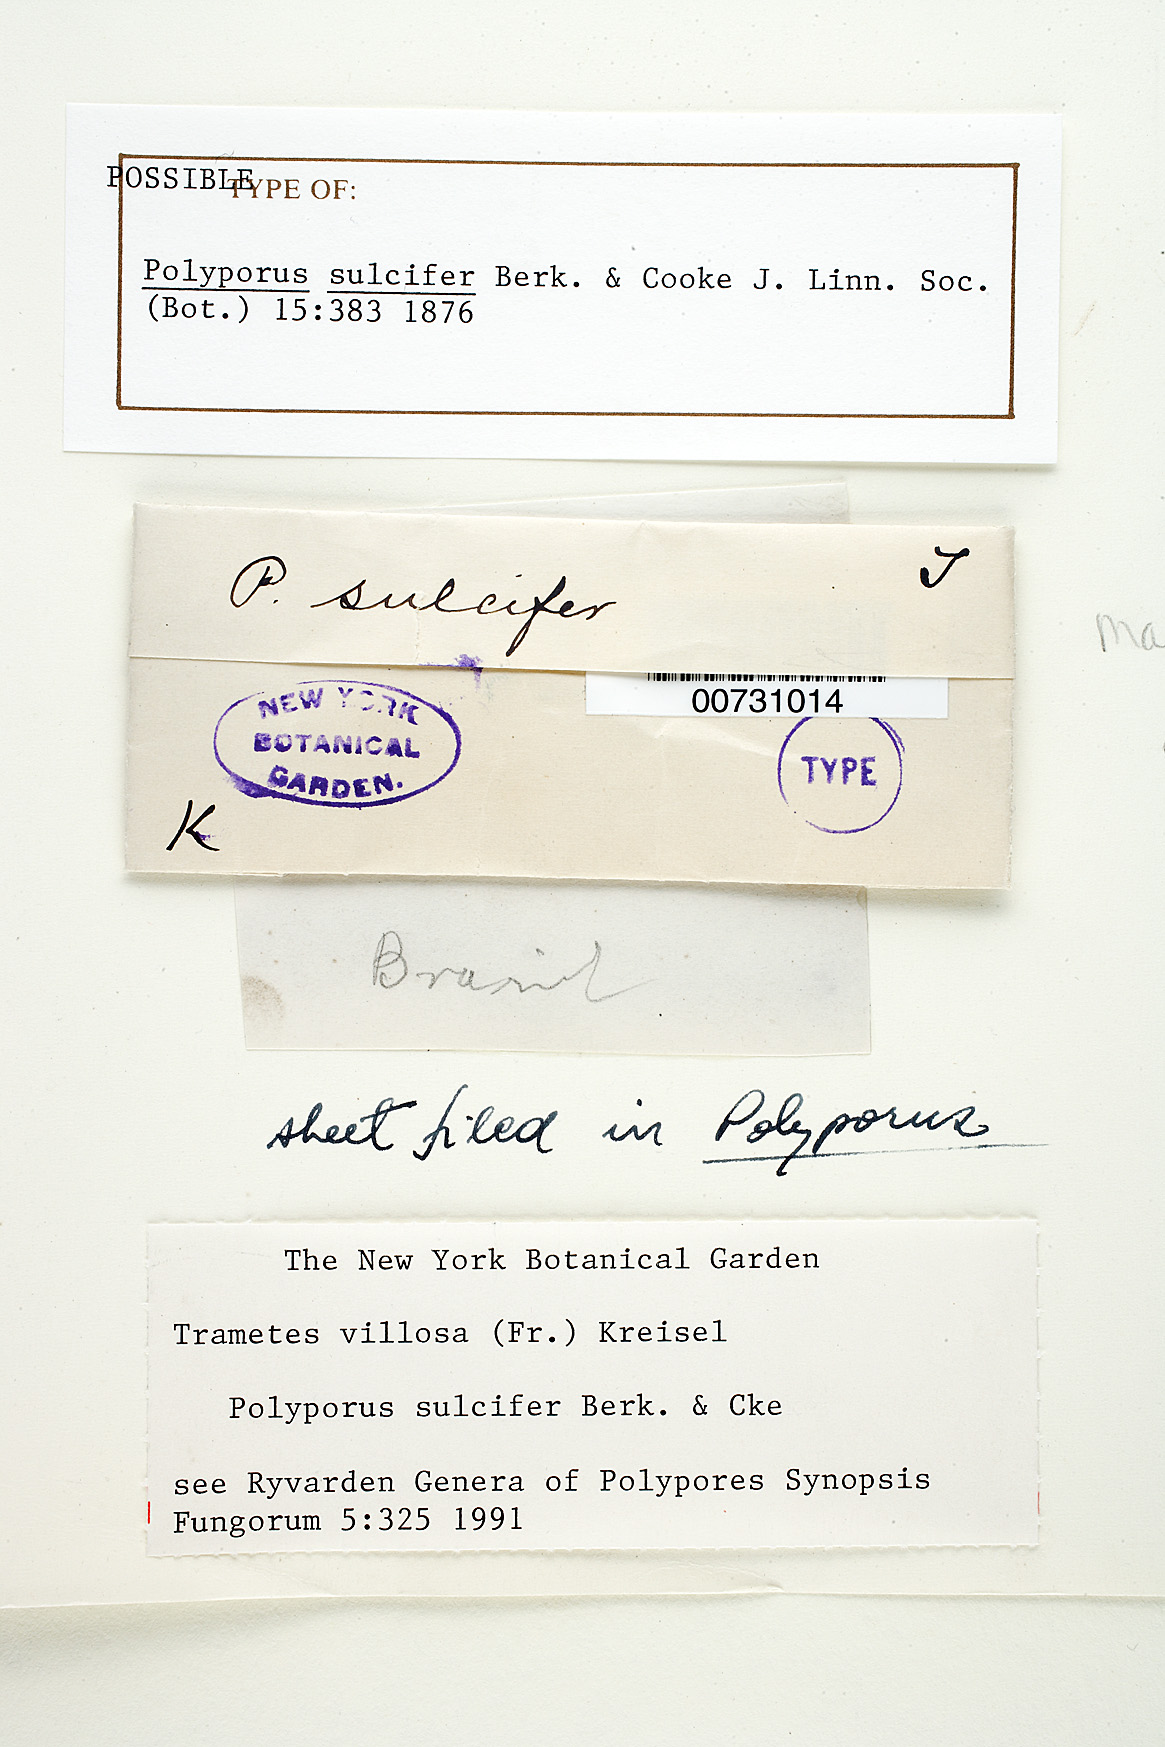 POSSIBLE TYPE OF:
Polyporus sulcifer Berk. & Cooke J. Linn. Soc.
(Bot.) 15:383 1876
P. sulcifer
J
00731014
NEW YORK
BOTANICAL
GARDEN.
TYPE
K
Brasil
sheet filed in Polyporus
The New York Botanical Garden
Trametes villosa (Fr.) Kreisel
Polyporus sulcifer Berk. & Cke
see Ryvarden Genera of Polypores Synopsis
Fungorum 5:325 1991